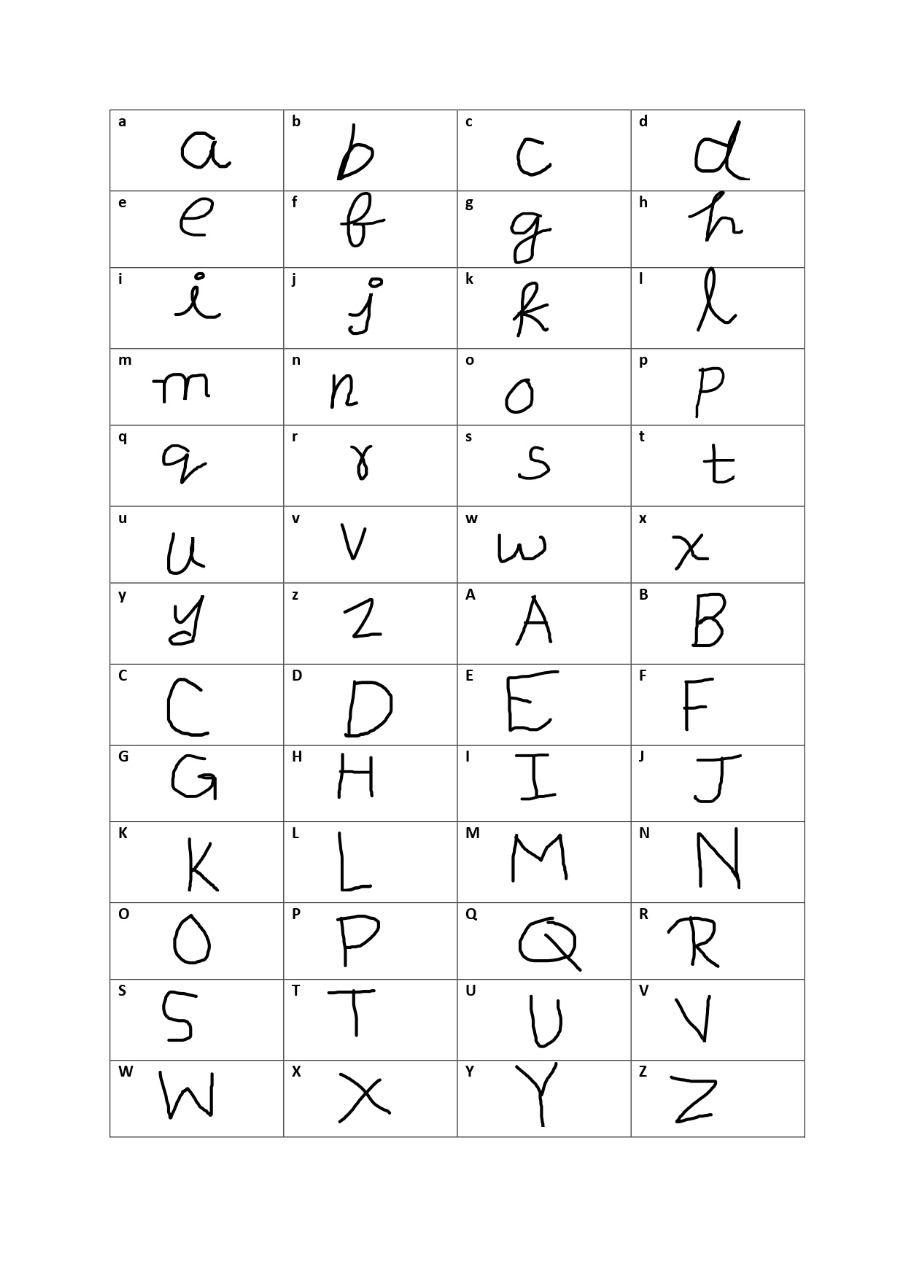 a a b b c c d d
e e f f g g h h
i i j j k k l l
m m n n o o p p
q q r r s s t t
u u v v w w x x
y y z z A A B B
C C D D E E F F
G G H H I I J J
K K L L M M N N
O O P P Q Q R R
S S T T U U V V
W W X X Y Y Z Z